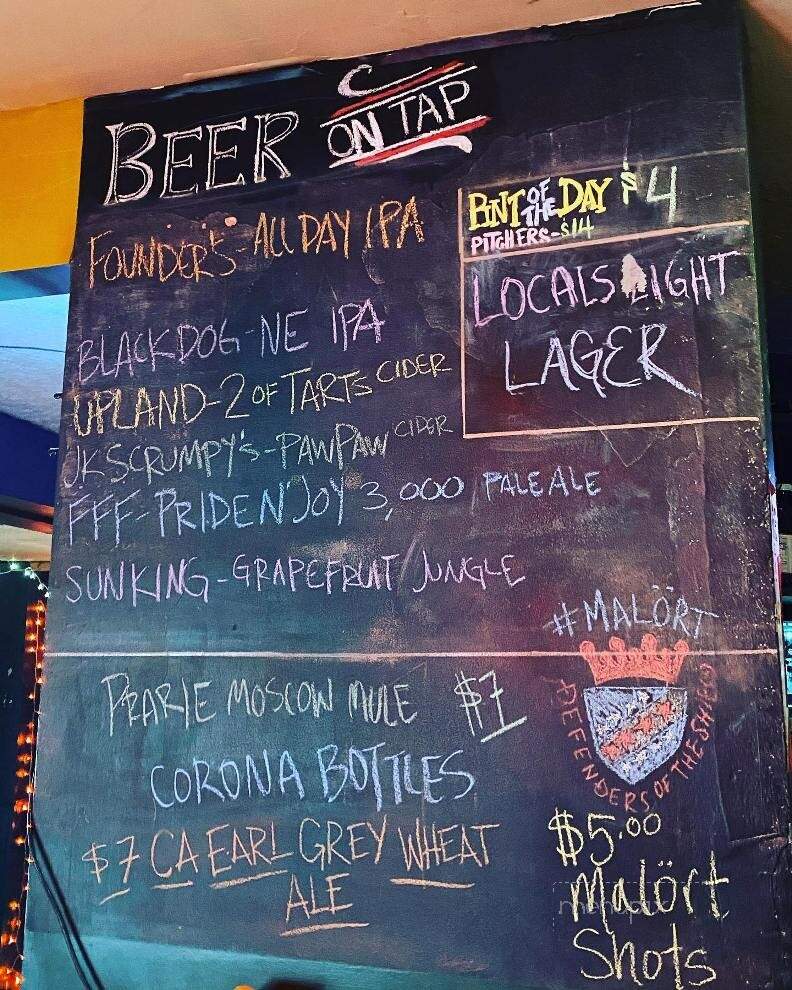 BEER ON TAP
FOUNDER'S-ALL DAY IPA
BLACKDOG-NE IPA
UPLAND-2 OF TARTS CIDER
JKSCRUMPY'S-PAWPAW CIDER
FFF-PRIDE N' JOY 3,000 PALE ALE
SUNKING-GRAPEFRUIT JUNGLE
PINT OF THE DAY $4
PITCHERS-$14
LOCALS LIGHT
LAGER
PRARIE MOSCOW MULE $7
CORONA BOTTLES
$7 CA EARL GREY WHEAT
ALE
#MALÖRT
DEFENDERS OF THE SHIELD
$5.00
Malört
Shots
menupix